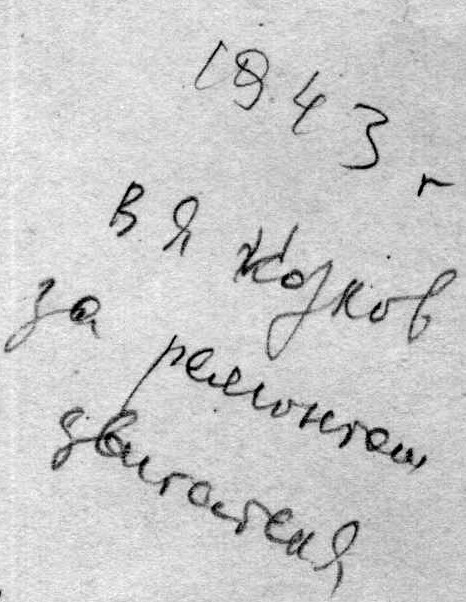 1943 г
В Я
за ремонтом
двигателя